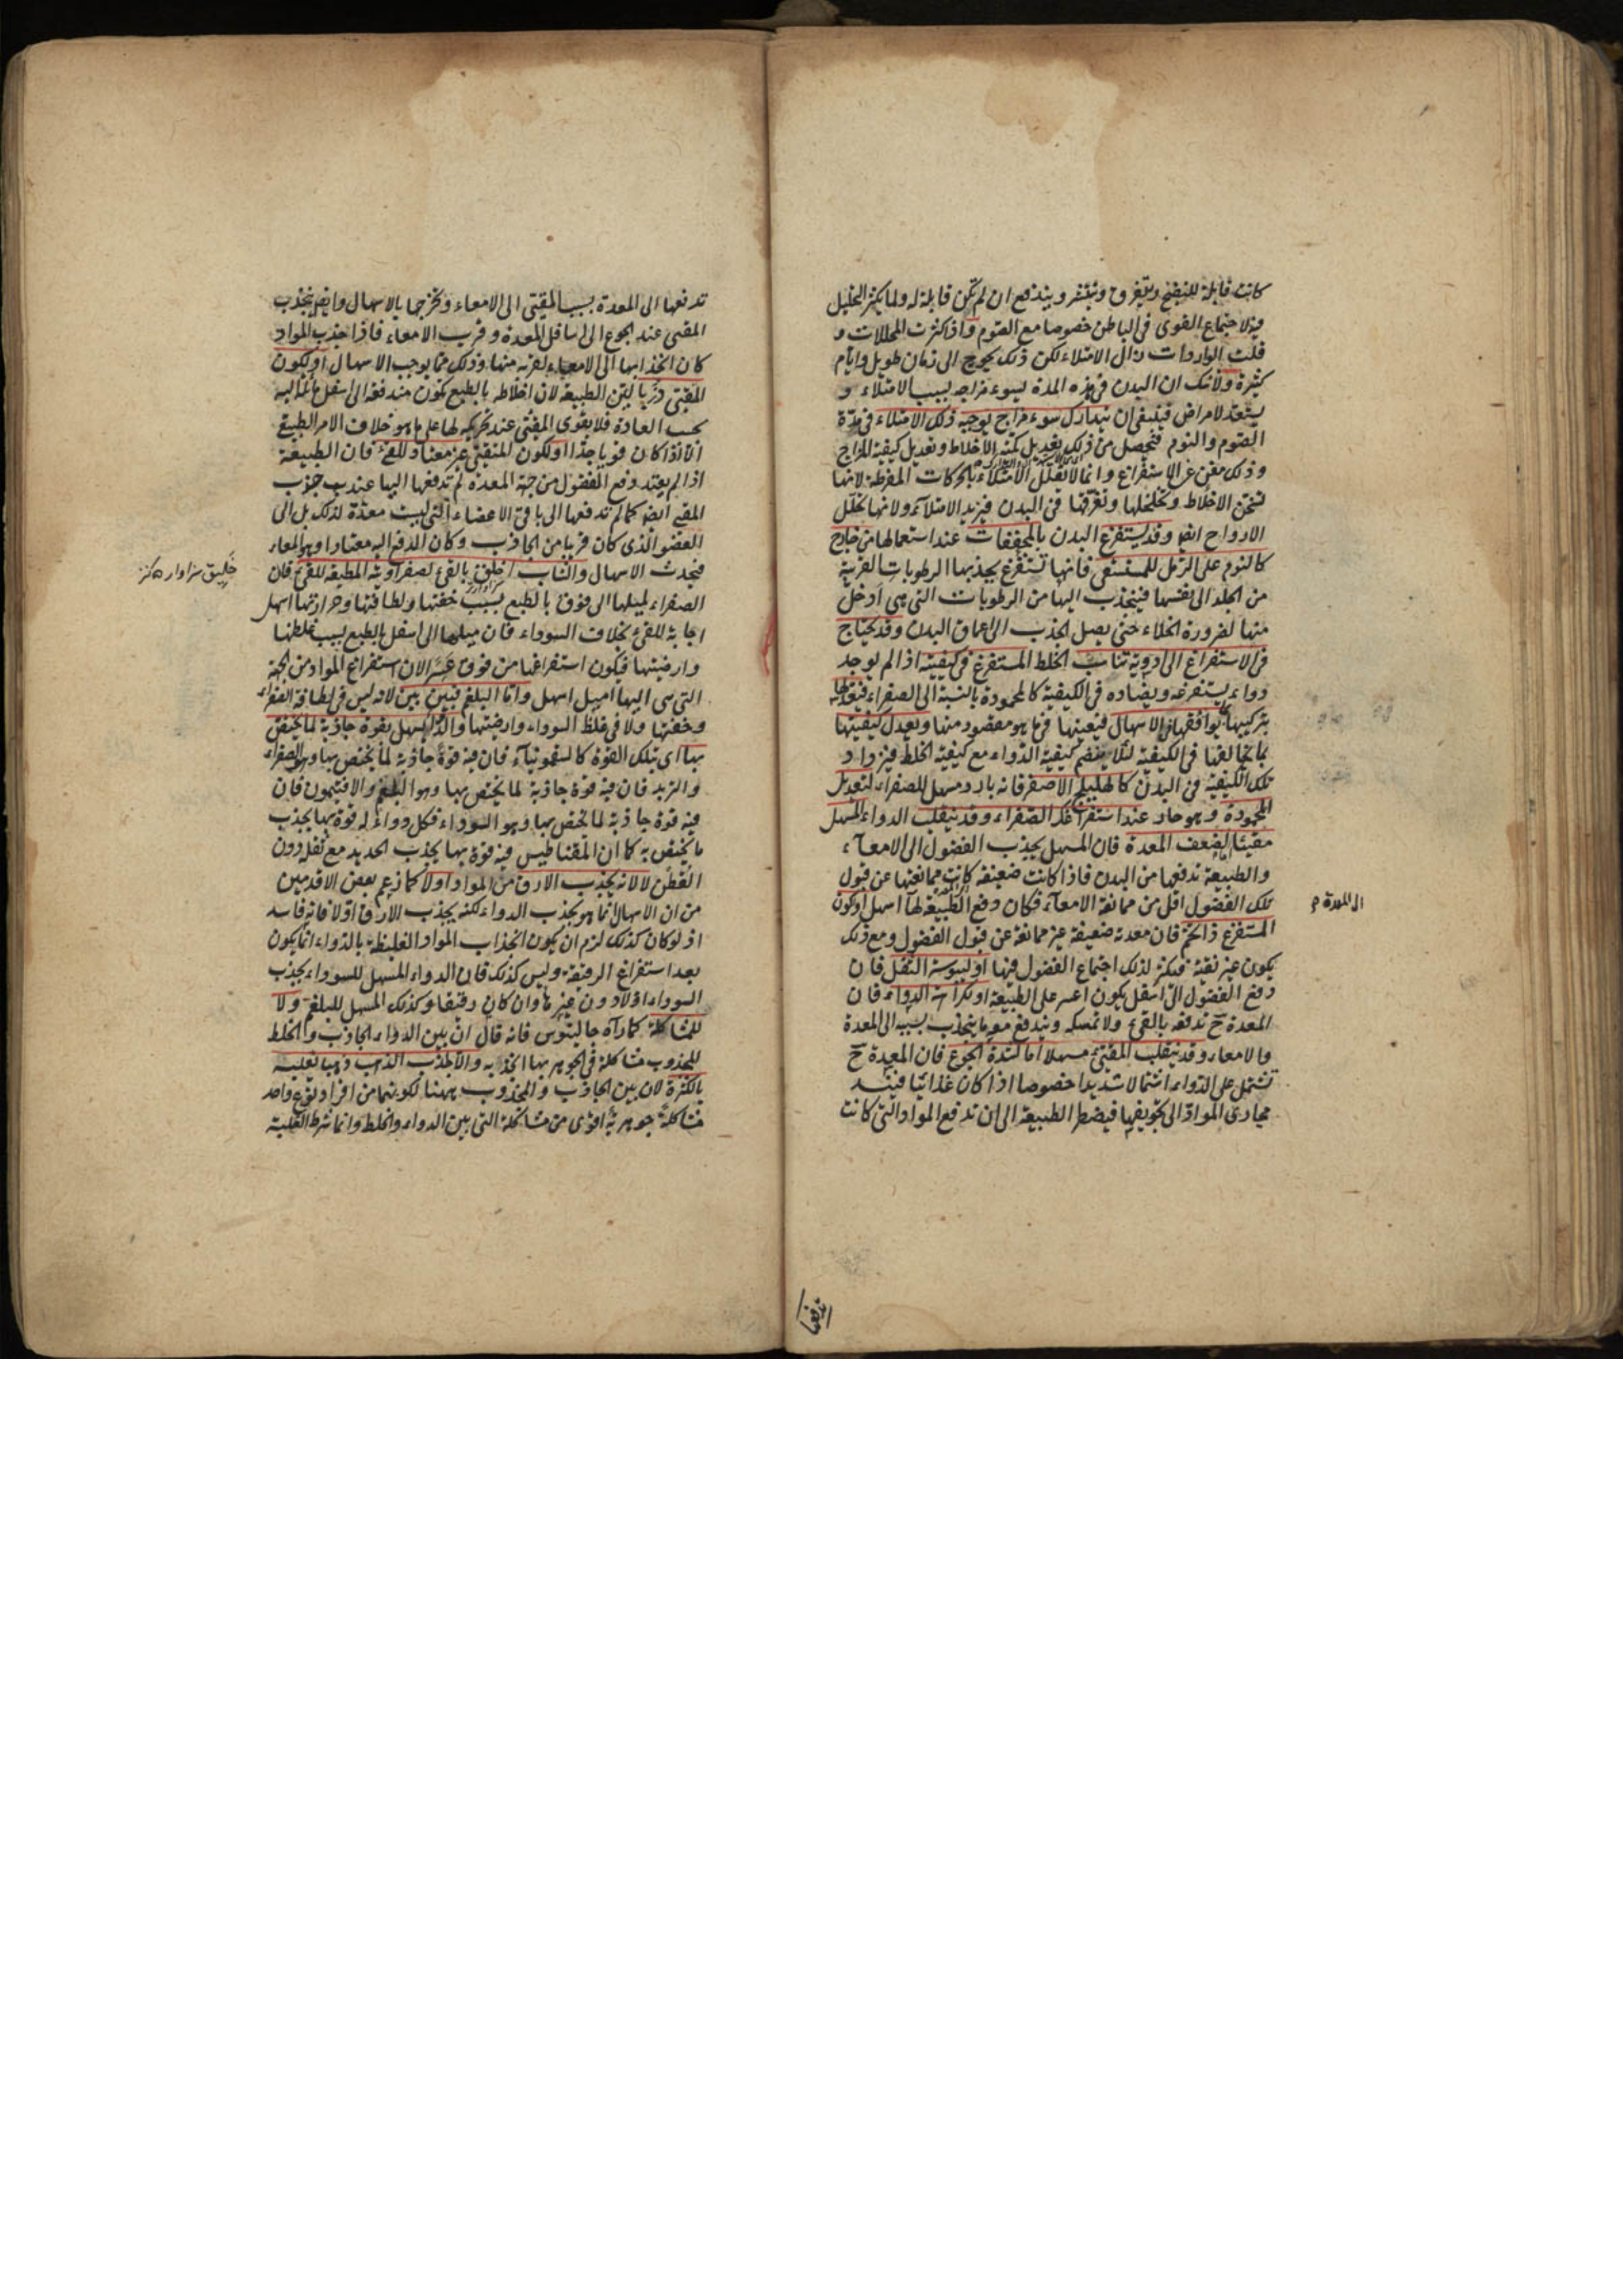 كانت قابلة للنضج ويتفرق وينتشر ويندفع ان لم تكن قابلة له ولما يكثر التحليل
فيه لاجتماع القوى فى الباطن خصوصا مع الصوم واذا كثرت المحللات و
قلت الواردات زال الامتلاء لكن ذلك يحوج الى زمان طويل وايام
كثيرة ولا شك ان البدن فى هذه المدة يسوء مزاجه بسبب الامتلاء و
يستعد لامراض فينبغى ان يتدارك سوء مزاج يوجبه ذلك الامتلاء فى مدة
الصوم والنوم فيحصل من ذلك تعديل كمية الاخلاط وتعديل كيفية المزاج
وذلك مغن عن الاستفراغ وانما لا نقلل الامتلاء بالحركات المفرطة لانها
تسخن الاخلاط وتخلخلها وتفرقها فى البدن فيزيد الامتلاء ولانها تحلل
الارواح ايضا وقد يستفرغ البدن بالمجففات عند استعمالها من خارج
كالنوم على الرمل للمستسقى فانها تستفرغ بجذبها الرطوبات القريبة
من الجلد الى نفسها فينجذب اليها من الرطوبات التى هى ادخل
منها لضرورة الخلاء حتى يصل الجذب الى اعماق البدن وقد يحتاج
فى الاستفراغ الى ادوية تناسب الخلط المستفرغ فى كيفيته اذا لم يوجد
دواء يستفرغه ويضاده فى الكيفية كالمحمودة بالنسبة الى الصفراء فيعدلها
بتركيبها بما يوافقها فى الاسهال فيعينها فيما هو مقصود منها ويعدل كيفيتها
بما يخالفها فى الكيفية لئلا ينضم كيفية الدواء مع كيفية الخلط فيزداد
تلك الكيفية فى البدن كالهليلج الاصفر فانه بارد ومسهل للصفراء لتعديل
المحمودة وهو حار عند استفراغك الصفراء وقد ينقلب الدواء المسهل
مقيئا اما لضعف المعدة فان المسهل يجذب الفضول الى الامعاء
والطبيعة تدفعها من البدن فاذا كانت ضعيفة كانت ممانعتها عن قبول
تلك الفضول اقل من ممانعة الامعاء فكان دفع الطبيعة لها اسهل او لكون
الى المعدة
المستفرغ ذا تخمة فان معدته ضعيفة غير ممانعة عن قبول الفضول ومع ذلك
يكون غير نقية فيكثر لذلك اجتماع الفضول فيها او ليبوسة الثفل فان
دفع الفضول الى اسفل يكون اعسر على الطبيعة او لكراهة الدواء فان
المعدة ح تدفعه بالقئ ولا تمسكه ويندفع معه ما ينجذب بسببه الى المعدة
والامعاء وقد ينقلب المقيئ مسهلا اما لشدة الجوع فان المعدة ح
تشتمل على الدواء اشتمالا شديدا خصوصا اذا كان غذائيا
مجارى المواد الى تجويفها فيضطر الطبيعة الى ان تدفع المواد التى كانت
تدفعها
تدفعها الى المعدة بسبب المقيئ الى الامعاء وتخرجها بالاسهال وايضا ينجذب
المقئ عند الجوع الى اسافل المعدة وقرب الامعاء فاذا جذب المواد
كان انجذابها الى الامعاء لقربه منها وذلك مما يوجب الاسهال او لكون
المقيئ ذربا لين الطبيعة لان اخلاطه بالطبع تكون مندفعة الى اسفل
بحسب العادة فلا يقوى المقيئ عند تحريكه لها على ما هو خلاف الامر الطبيعى
الا اذا كان قويا جدا او لكون المتقيئ غير معتاد للقئ فان الطبيعة
اذا لم يعتد دفع الفضول من جهة المعدة لم تدفعها اليها عند جذب
المقيئ ايضا كما لم تدفعها الى باقى الاعضاء التى ليست معدة لذلك بل الى
العضو الذى كان قريبا من الجاذب وكان الدفع اليه معتادا وهو المعاء
فيحدث الاسهال والشاب اخلق بالقئ لصفراويته المطيعة للقئ فان
خليق سزاوار
الصفراء لميلها الى فوق بالطبع بسبب خفتها ولطافتها وحرارتها اسهل
اجابة للقئ بخلاف السوداء فان ميلها الى اسفل بالطبع بسبب غلظها
وارضيتها فيكون استفراغها من فوق عسرا لان استفراغ المواد من الجهة
التى هى اليها اميل اسهل واما البلغم فبين بين لانه ليس فى لطافة الصفراء
وخفتها ولا فى غلظ السوداء وارضيتها والدواء المسهل بقوة جاذبة لما يختص
بها اى بتلك القوة كالسقمونياء فان فيه قوة جاذبة لما يختص بها وهو الصفراء
والتربد فان فيه قوة جاذبة لما يختص بها وهو البلغم والافتيمون فان
فيه قوة جاذبة لما يختص بها وهو السوداء فكل دواء له قوة بها يجذب
ما يختص به كما ان المقناطيس فيه قوة بها يجذب الحديد مع ثقله دون
القطن لا لانه يجذب الارق من المواد اولا كما زعم بعض الاقدمين
من ان الاسهال انما هو بجذب الدواء لكنه يجذب الارق اولا فانه فاسد
اذ لو كان كذلك لزم ان يكون انجذاب المواد الغليظة بالدواء انما يكون
بعد استفراغ الرقيقة وليس كذلك فان الدواء المسهل للسوداء يجذب
السوداء اولا دون غيرها وان كان رقيقا وكذلك المسهل للبلغم ولا
للمشاكلة كما رآه جالينوس فانه قال ان بين الدواء الجاذب والخلط
المجذوب مشاكلة فى الجوهر بها الجذبه والا لجذب الذهب ذهبا يغلبه
بالكثرة لان بين الجاذب والمجذوب ههنا لكونهما من افراد نوع واحد
مشاكلة جوهرية اقوى من مشاكلة التى بين الدواء والخلط وانما شرط الغلبة